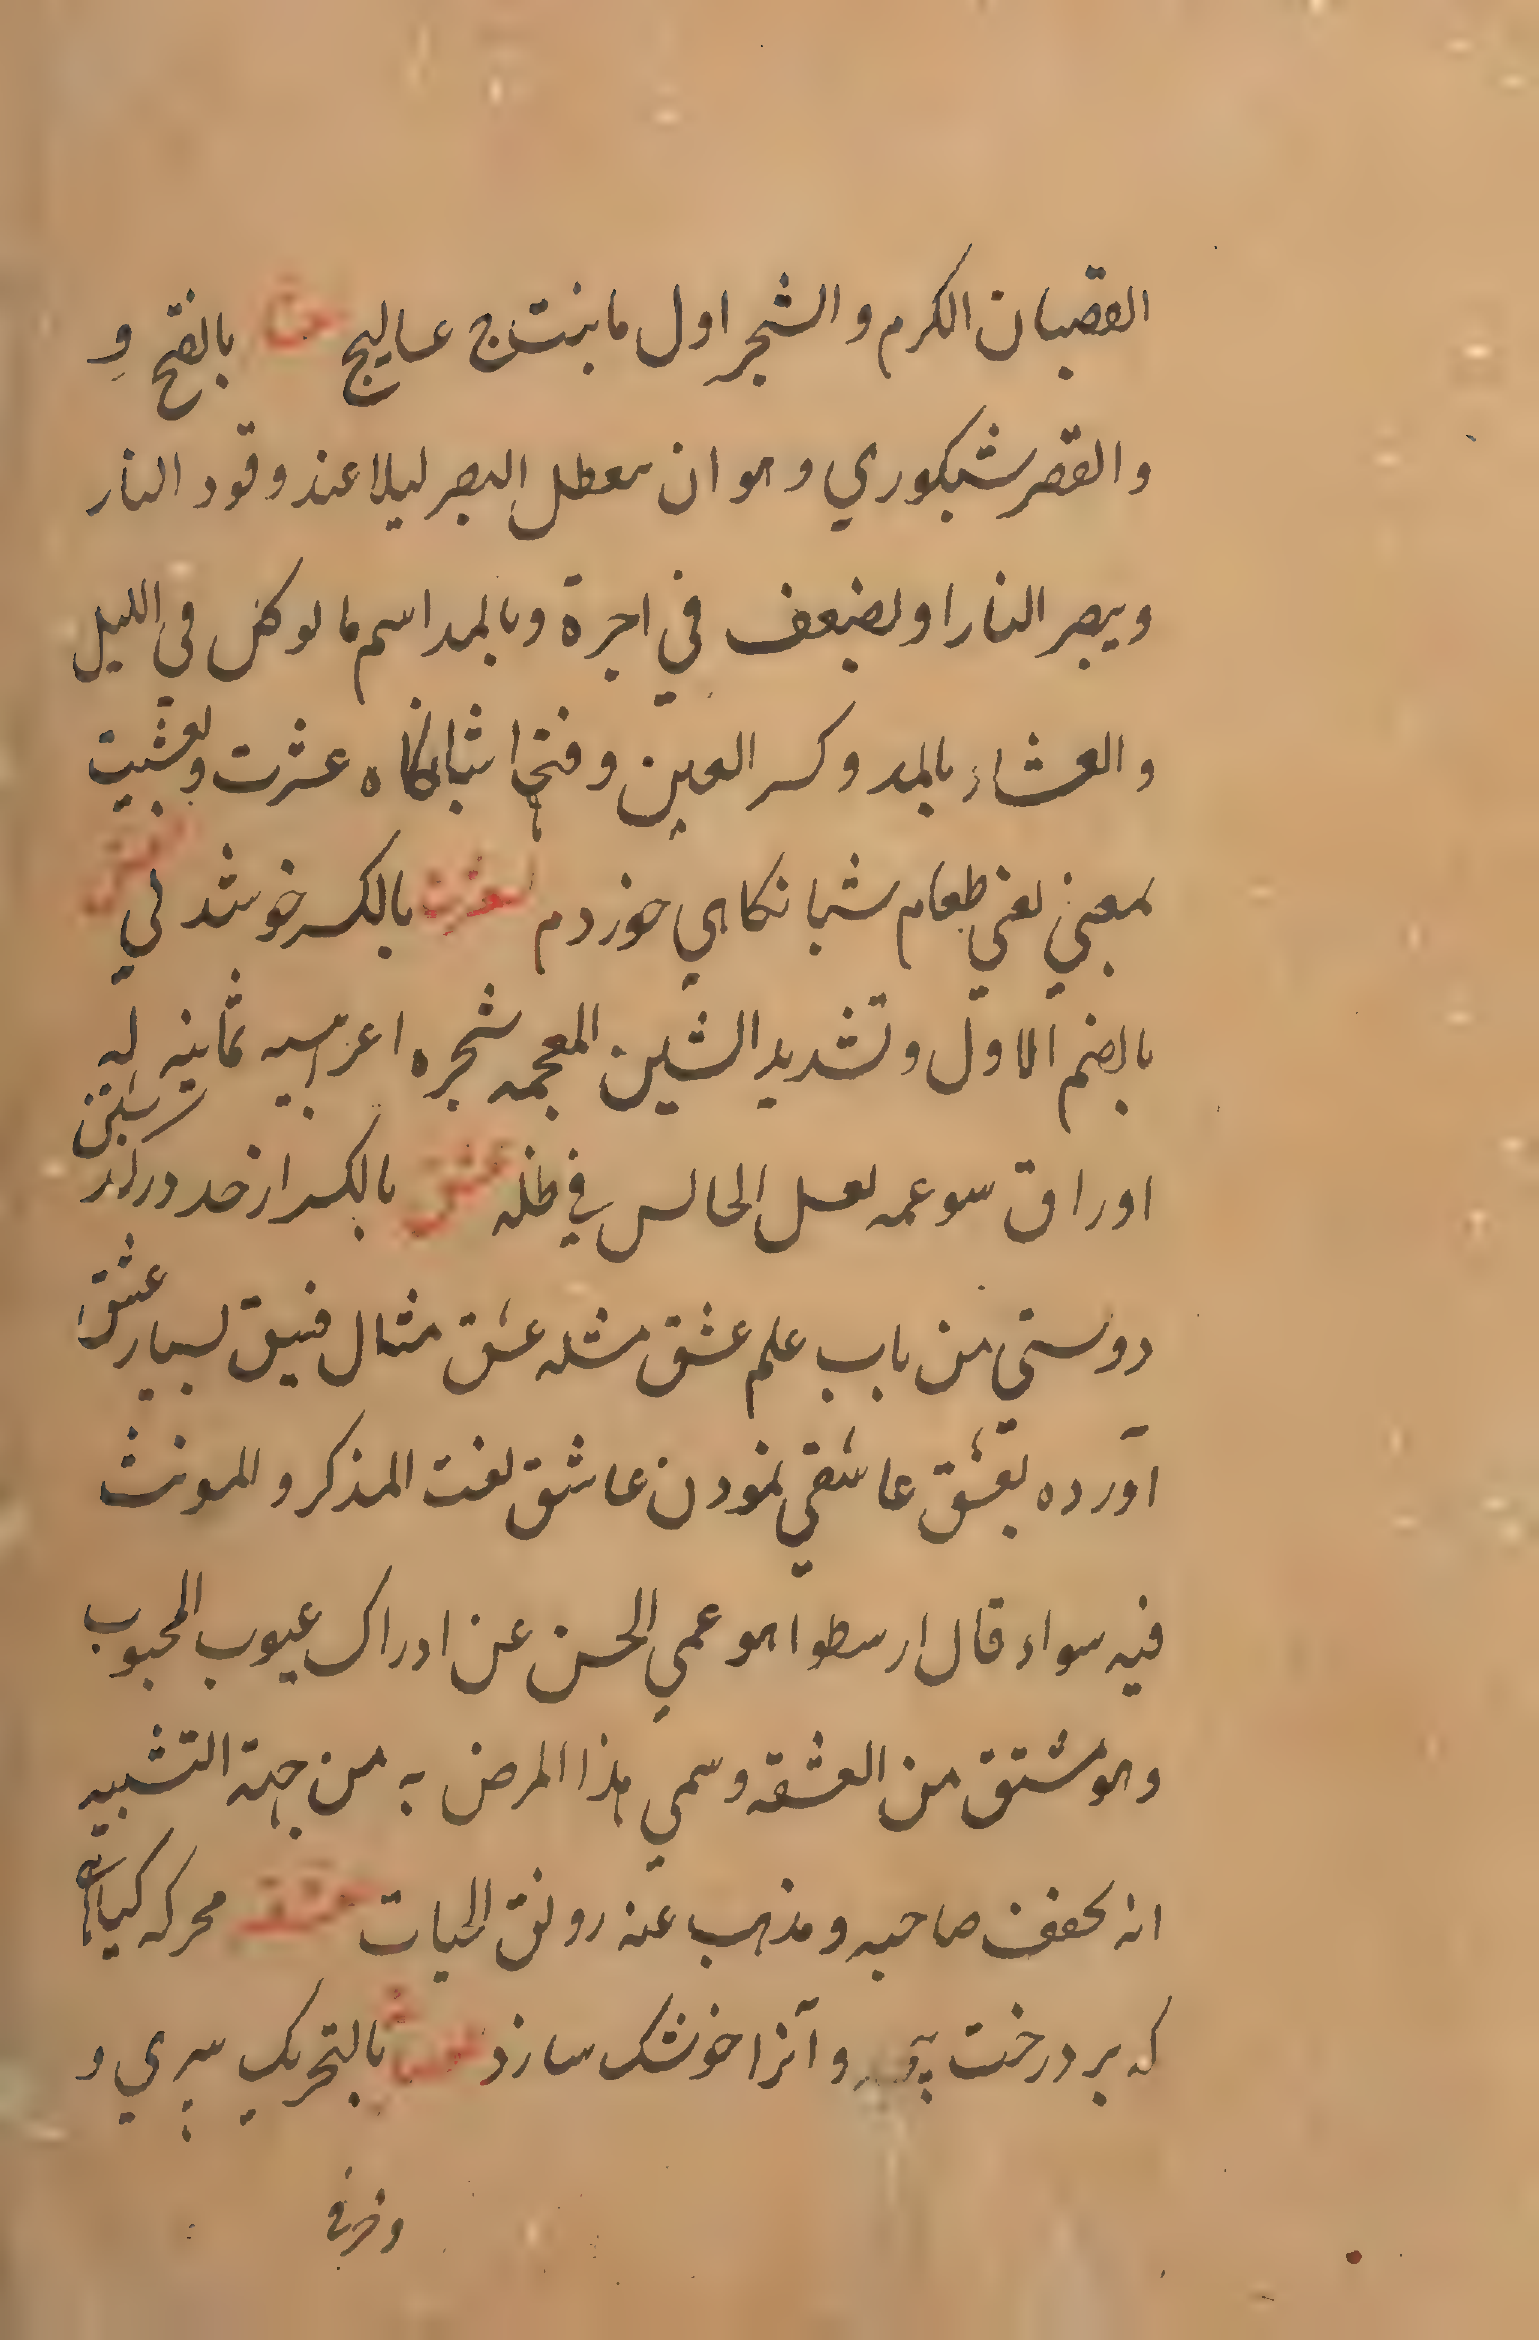 القضبان الكرم والشجر اول ما ينبت ج عساليج عشا بالفتح و
والقصر شبكوري وهو ان يعطل البصر ليلا عند وقود النار
ويبصر النار او لضعف في اجرة وبالمد اسم ما يوكل في الليل
والعشاء بالمد وكسر العين وفتحها شبانكاه عشرت ولعشيت
بمعني يعني طعام شبانكاهي خوردم عشرت بالكسر خوشدلي عشق
بالضم الاول وتشديد الشين المعجمه شجره ثمانيه له
اوراق الجالس في ظله عشق بالكسر از حد دركذشتن
دوستي من باب علم عشق مثله عشق مثال فسيق بسيار عشق
آورده تعشق عاشقي نمودن عاشق نعت المذكر و للمونث
فيه سواء قال ارسطوا هو عمي الحس عن ادراك عيوب المحبوب
وهو مشتق من العشقه وسمي هذا المرض به من جهة التشبيه
انه يجفف صاحبه و يذهب عنه رونق الحيات عشقه محركه كياهي
كه بر درخت و آنرا خوشك سازد بالتحريك سيري و